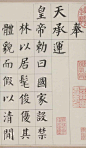 奉
天承運
皇帝勅曰國家設禁
林以居髦俊優其
體貌而假以清閒